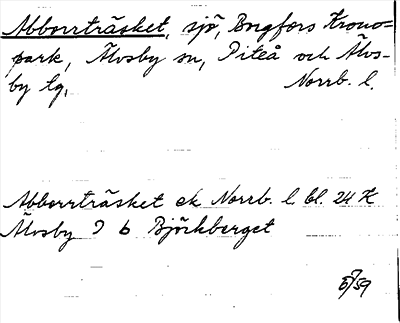 Abborrträsket, sjö, Bogfors Krono-
park, Älvsby sn, Piteå och Älvs-
by tg, Norrb. l.
Abborrträsket ek Norrb. l bl. 24 K
Älvsby 9 b Björkberget
6/7 59